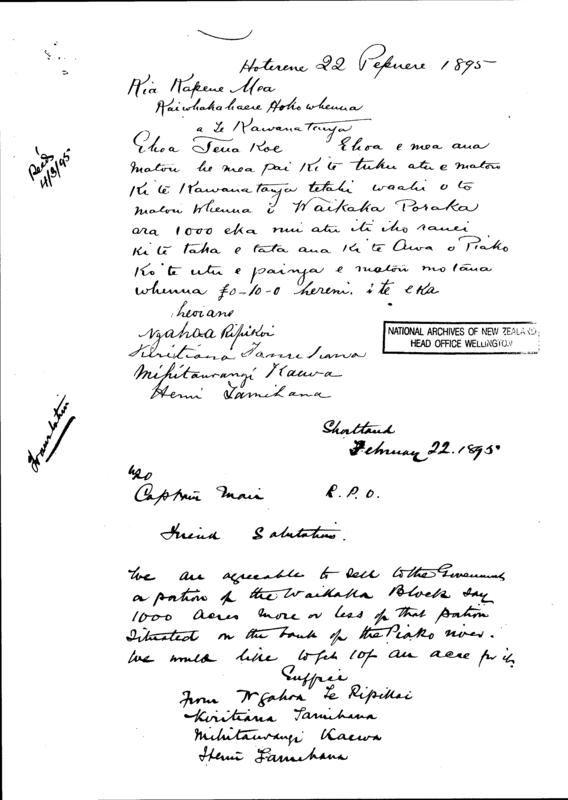 Hoterene 22 Pepuere 1895
Kia Kapene Mea
Kaiwhakahaere Hoko whenua
a Te Kawanatanga
Ehoa Tena Koe Ehoa e mea ana
matou he mea pai Ki te tuku atu e matou
Ki te Kawanatanga tetahi waahi o to
matou whenua i Waikaka Poraka
ara 1000 eka nui atu iti iho ranei
Ki te taha e tata ana Ki te Awa o Piako
Ko te utu e paingia e matou mo taua
whenua £0-10-0 hereni. i te eka
heoiano
Ngahoa Ripikoi
Kiritiana Tamihana
Mihitaurangi Kaewa
Hemi Tamihana
Recd
4/3/95
NATIONAL ARCHIVES OF NEW ZEALAND
HEAD OFFICE WELLINGTON
Translation
Shortland
February 22. 1895
To
Captain Mair R. P. O.
Friend Salutations.
We are agreeable to sell to the Government
a portion of the Waikaka Block say
1000 Acres more or less of that portion
Situated on the bank of the Piako river.
We would like to get 10/- an acre for it.
Suffice
From Ngahoa Te Ripikoi
Kiritiana Tamihana
Mihitaurangi Kaewa
Hemi Tamihana